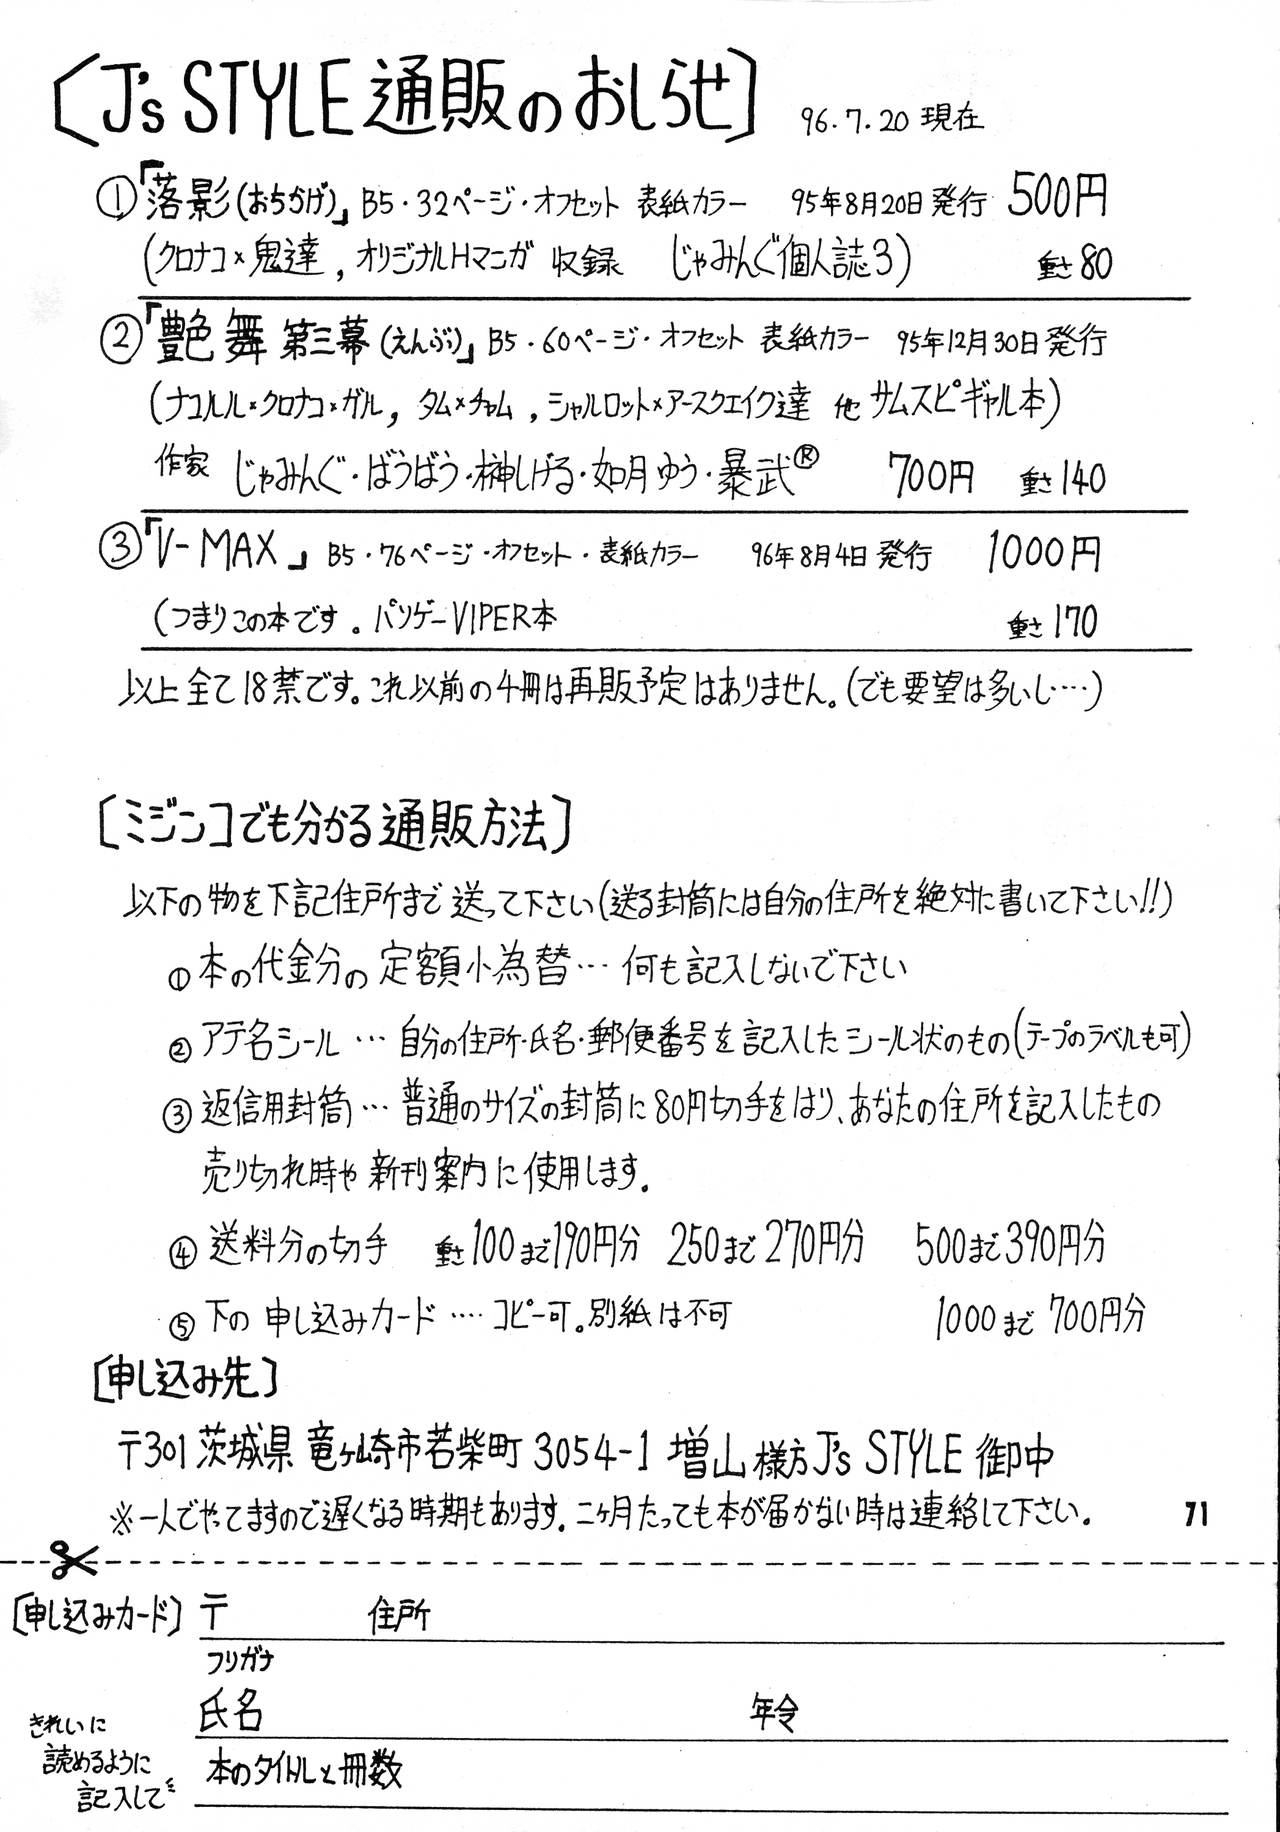 [J's STYLE 通販のおしらせ] 96.7.20 現在
①「落影(おちかげ)」B5・32ページ・オフセット 表紙カラー 95年8月20日発行 500円
(クロナコ×鬼達, オリジナルHマンガ 収録 じゃみんぐ個人誌3) 重さ80
②「艶舞 第三幕(えんぶ)」B5・60ページ・オフセット 表紙カラー 95年12月30日発行
(ナコルル×クロナコ×ガル, タム×チャム, シャルロット×アースクエイク達 他 サムスピギャル本)
作家 じゃみんぐ・ばうばう・榊しげる・如月ゆう・暴武® 700円 重さ140
③「V-MAX」B5・76ページ・オフセット・表紙カラー 96年8月4日発行 1000円
(つまりこの本です。パソゲーVIPER本 重さ170
以上全て18禁です。これ以前の4冊は再販予定はありません。(でも要望は多いし‥‥)
[ミジンコでも分かる通販方法]
以下の物を下記住所まで送って下さい(送る封筒には自分の住所を絶対に書いて下さい!!)
①本の代金分の定額小為替… 何も記入しないで下さい
②アテ名シール … 自分の住所・氏名・郵便番号を記入したシール状のもの(テープのラベルも可)
③返信用封筒… 普通のサイズの封筒に80円切手をはり、あなたの住所を記入したもの
売り切れ時や新刊案内に使用します。
④送料分の切手 重さ100まで190円分 250まで270円分 500まで390円分
⑤下の申し込みカード ‥‥ コピー可。別紙は不可 1000まで700円分
[申し込み先]
〒301 茨城県竜ヶ崎市若柴町3054-1 増山様方 J's STYLE 御中
※一人でやってますので遅くなる時期もあります。二ヶ月たっても本が届かない時は連絡して下さい。 71
[申し込みカード] 〒 住所
フリガナ
氏名 年令
きれいに
読めるように
記入して
本のタイトルと冊数